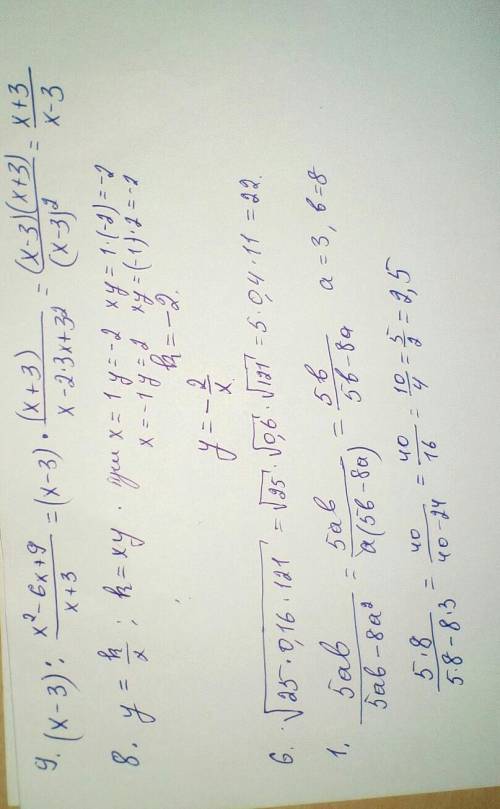 9. (x-3) : \frac{x^2-6x+9}{x+3} = (x-3) \cdot \frac{(x+3)}{x-2\cdot3x+3^2} = \frac{(x-3)(x+3)}{(x-3)^2} = \frac{x+3}{x-3}
8. y = \frac{k}{x} ; k = xy . при x = 1 y = -2 xy = 1·(-2) = -2
x = -1 y = 2 xy = (-1)·2 = -2
k = -2.
y = -\frac{2}{x}
6. \sqrt{25·0,16·121} = \sqrt{25}·\sqrt{0,6}·\sqrt{121} = 5·0,4·11 = 22.
1. \frac{5ab}{5ab-8a^2} = \frac{5ab}{a(5b-8a)} = \frac{5b}{5b-8a} a = 3, b = 8
\frac{5·8}{5·8-8·3} = \frac{40}{40-24} = \frac{40}{16} = \frac{10}{4} = \frac{5}{2} = 2,5